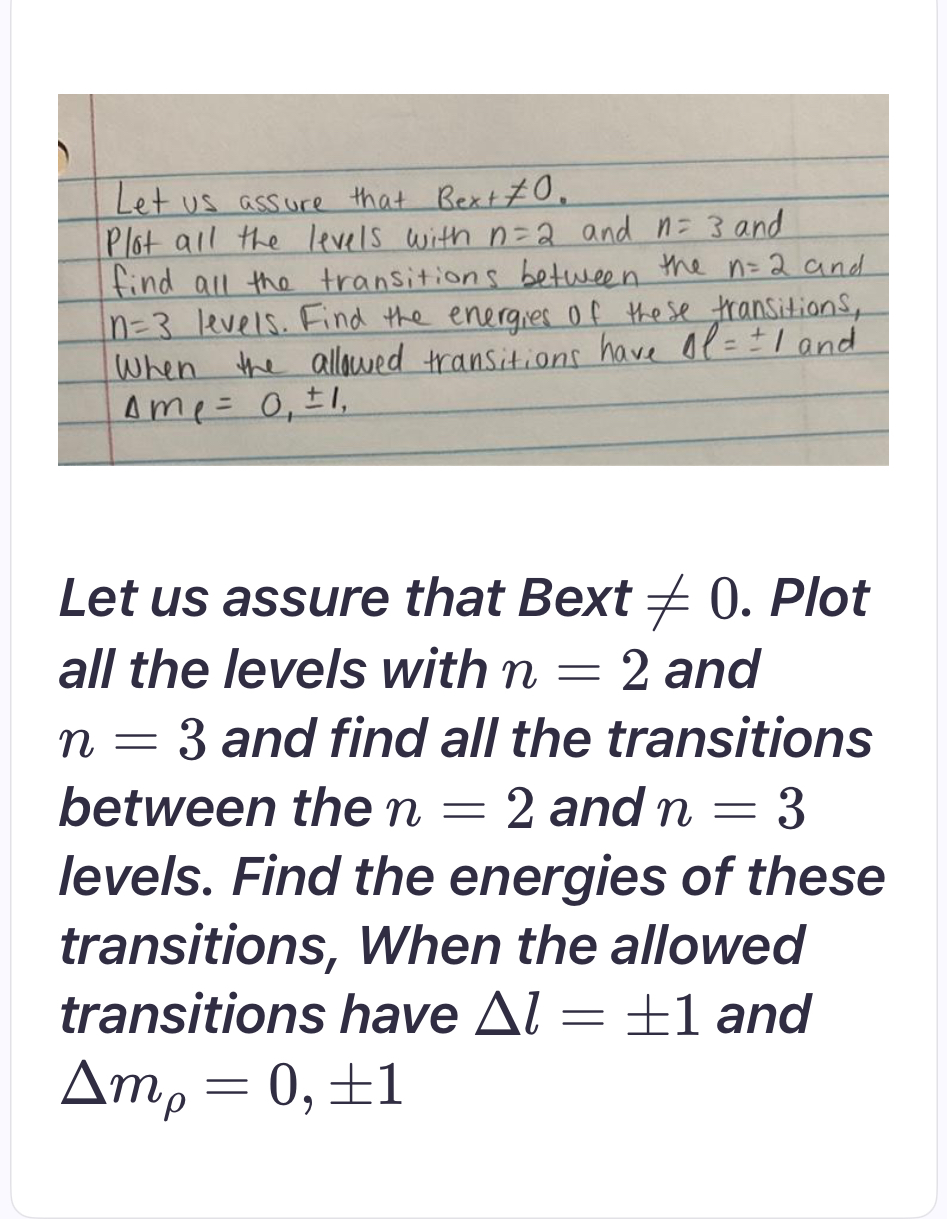 Let us assure that Bext≠0.
Plot all the levels with n=2 and n=3 and
find all the transitions between the n=2 and
n=3 levels. Find the energies of these transitions,
When the allowed transitions have Δl=±1 and
Δmℓ= 0,±1,
Let us assure that Bext ≠ 0. Plot
all the levels with n = 2 and
n = 3 and find all the transitions
between the n = 2 and n = 3
levels. Find the energies of these
transitions, When the allowed
transitions have Δl = ±1 and
Δmρ = 0, ±1